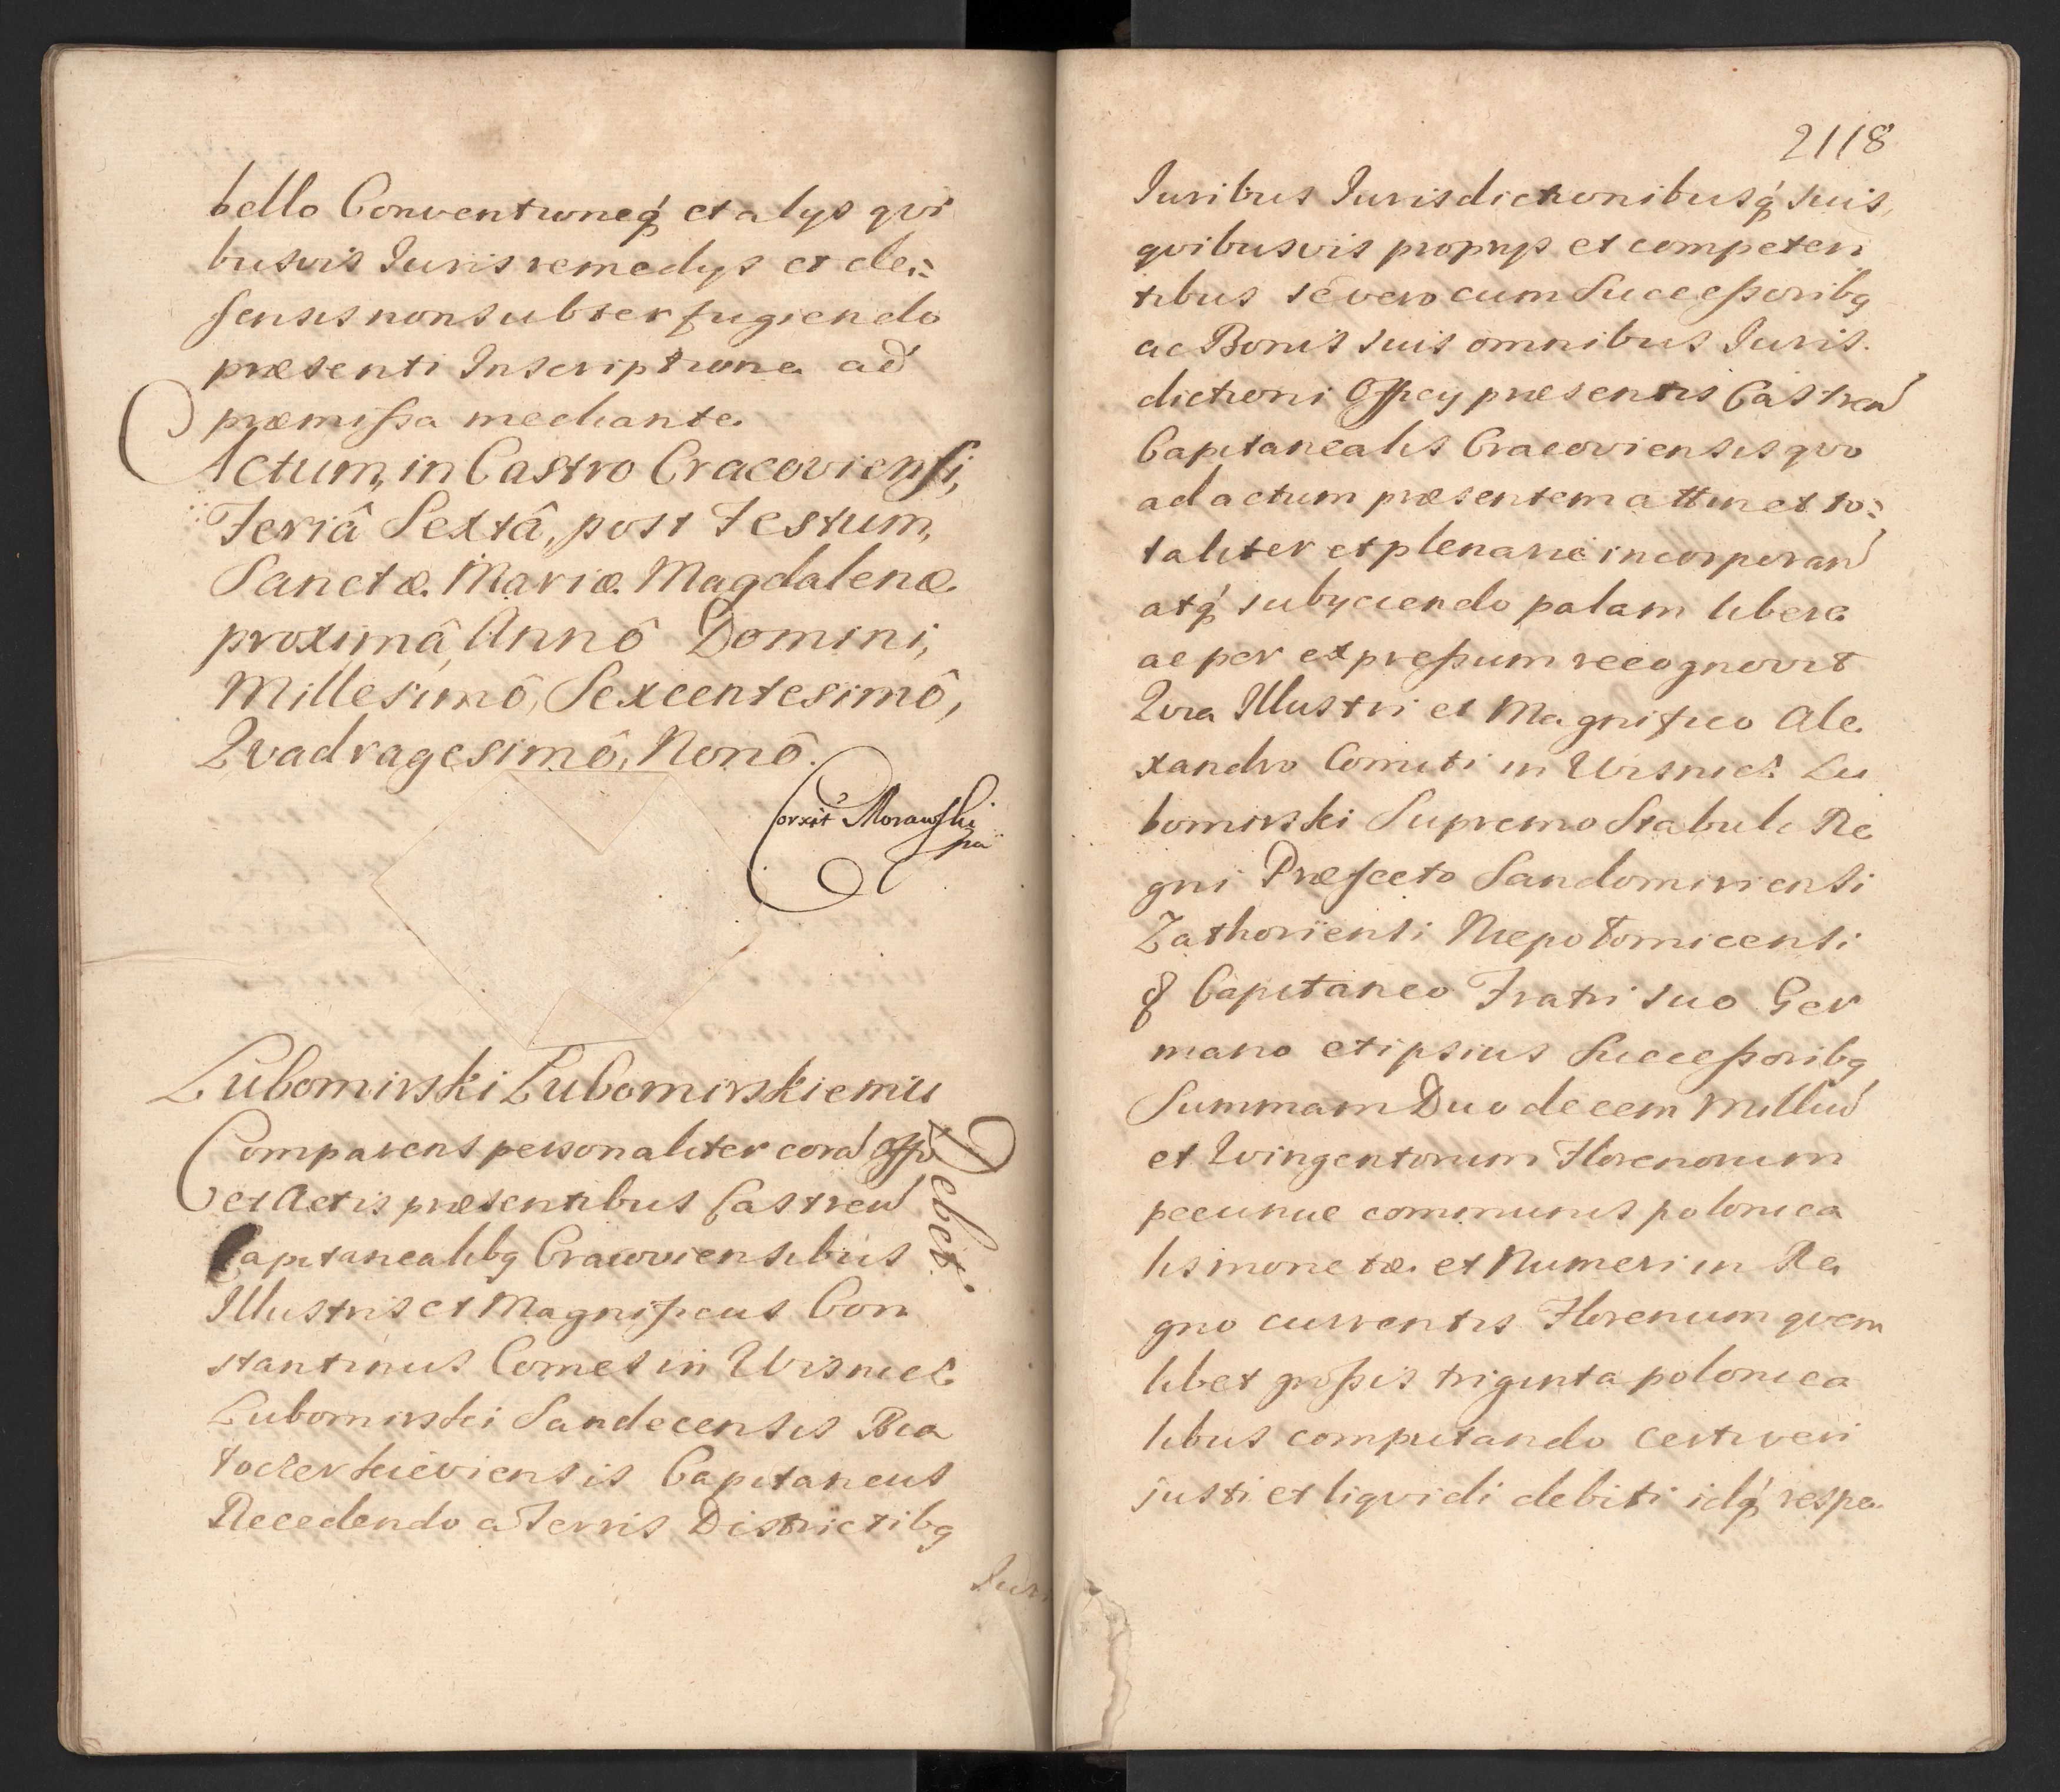 bello Conventioneq́ et alys qvi
busvis Iuris remedys et de:
fensis non subterfugiendo
præsenti Inscriptione ad
præmissa mediante.
Actum, in Castro Cracoviensi,
Feriâ Sextâ, post Festum,
Sanctæ Mariæ Magdalenæ
proximâ, Annô Domini,
Millesimô, Sexcentesimô,
Qvadragesimô, Nonô.
Corxit Morawski
Lubomirski Lubomirskiemu
Comparens personaliter corā Offō
et Actis præsentibus Castren̄
Capitanealibq Cracoviensibus
Debet.
Illustris et Magnificus Con
stantinus Comes in Wisnicz
Lubomirski Sandecensis Bia
tocerkieviensis Capitaneus
Recedendo a Terris Districtibq
Juri
2118
Iuribus Iurisdictionibusq́ suis,
qvibusvis proprys et competen
tibus se vero cum Successoribq
ac Bonis suis omnibus Iuris.
dictioni Officy præsentis Castren̄
Capitanealis Cracoviensis qvo
ad actum præsentem attinet to:
taliter et plenarie incorporan̄
atq́ subyciendo palam libere
ac per expressum recognovit
Qvia Illustri et Magnifico Ale
xandro Comiti in Wisnicz Lu
bomirski Supremo Stabuli Re
gni Præfecto Sandomiriensi
Zathoriensi Niepotomicensi
& Capitaneo Fratri suo Ger
mano et ipsius Successoribq
Summam Duodecem Milliū
et Qvingentorum Florenorum
pecuniæ communis polonica
lis monetæ et Numeri in Re
gno currentis Florenum qvem
libet grossis triginta polonica
libus computando certi veri
justi et liqvidi debiti idq́ respe